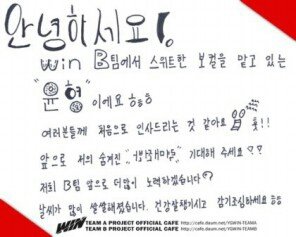 안녕하세요!
WIN B팀에서 스위트한 보컬을 맡고 있는
"윤형" 이에요 ㅎㅎ
여러분들께 처음으로 인사드리는 것 같아요 훗!!
앞으로 저의 숨겨진 기대해 주세요 ??
저희 B팀 앞으로 더많이 노력하겠습니다
날씨가 많이 쌀쌀해졌습니다. 건강잘챙기시고 감기조심하세요 ㅎㅎ
WIN TEAM A PROJECT OFFICIAL CAFE http://cafe.daum.net/YGWIN-TEAMA
TEAM B PROJECT OFFICIAL CAFE http://cafe.daum.net/YGWIN-TEAMB